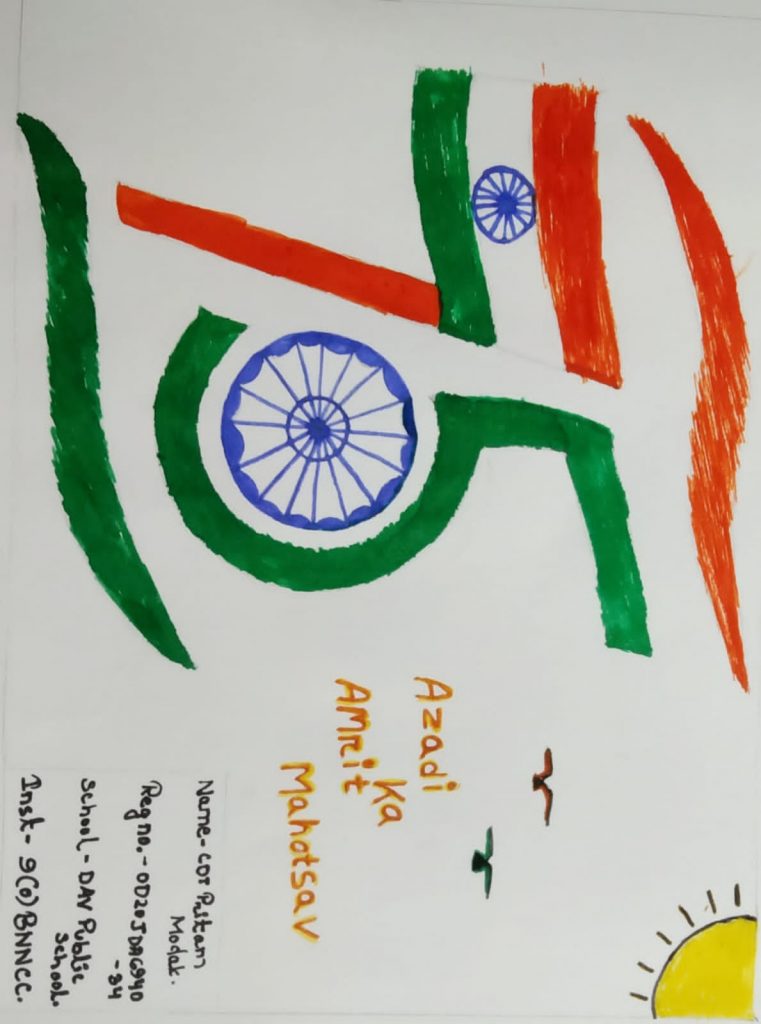 75
Azadi
Ka
AMrit
Mahotsav
Name - CDT Pritam
Modak.
Reg no. - OD20JDA6940
- 34
School - DAV Public
School.
Inst - 9(O) BNNCC.